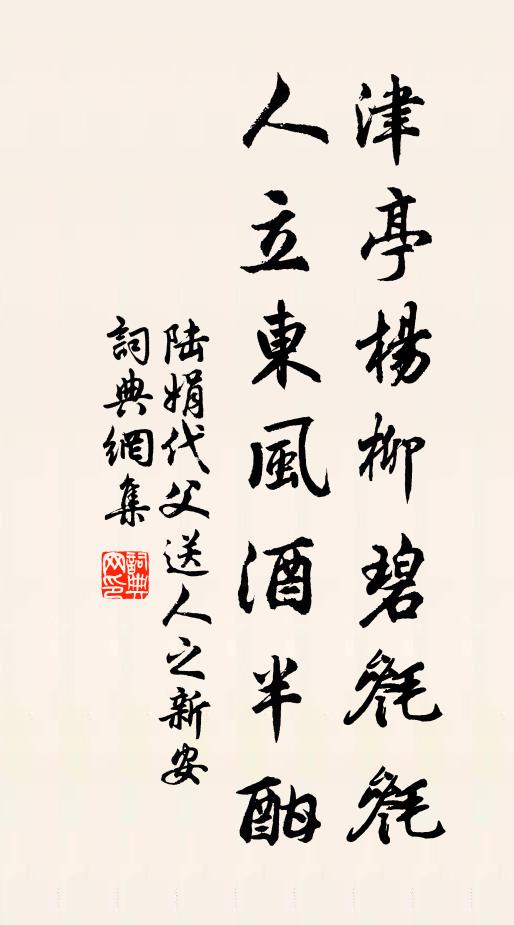 津亭楊柳碧毿毿
人立東風酒半酣
陸娟代父送人之新安
詞典網集
詞典網印